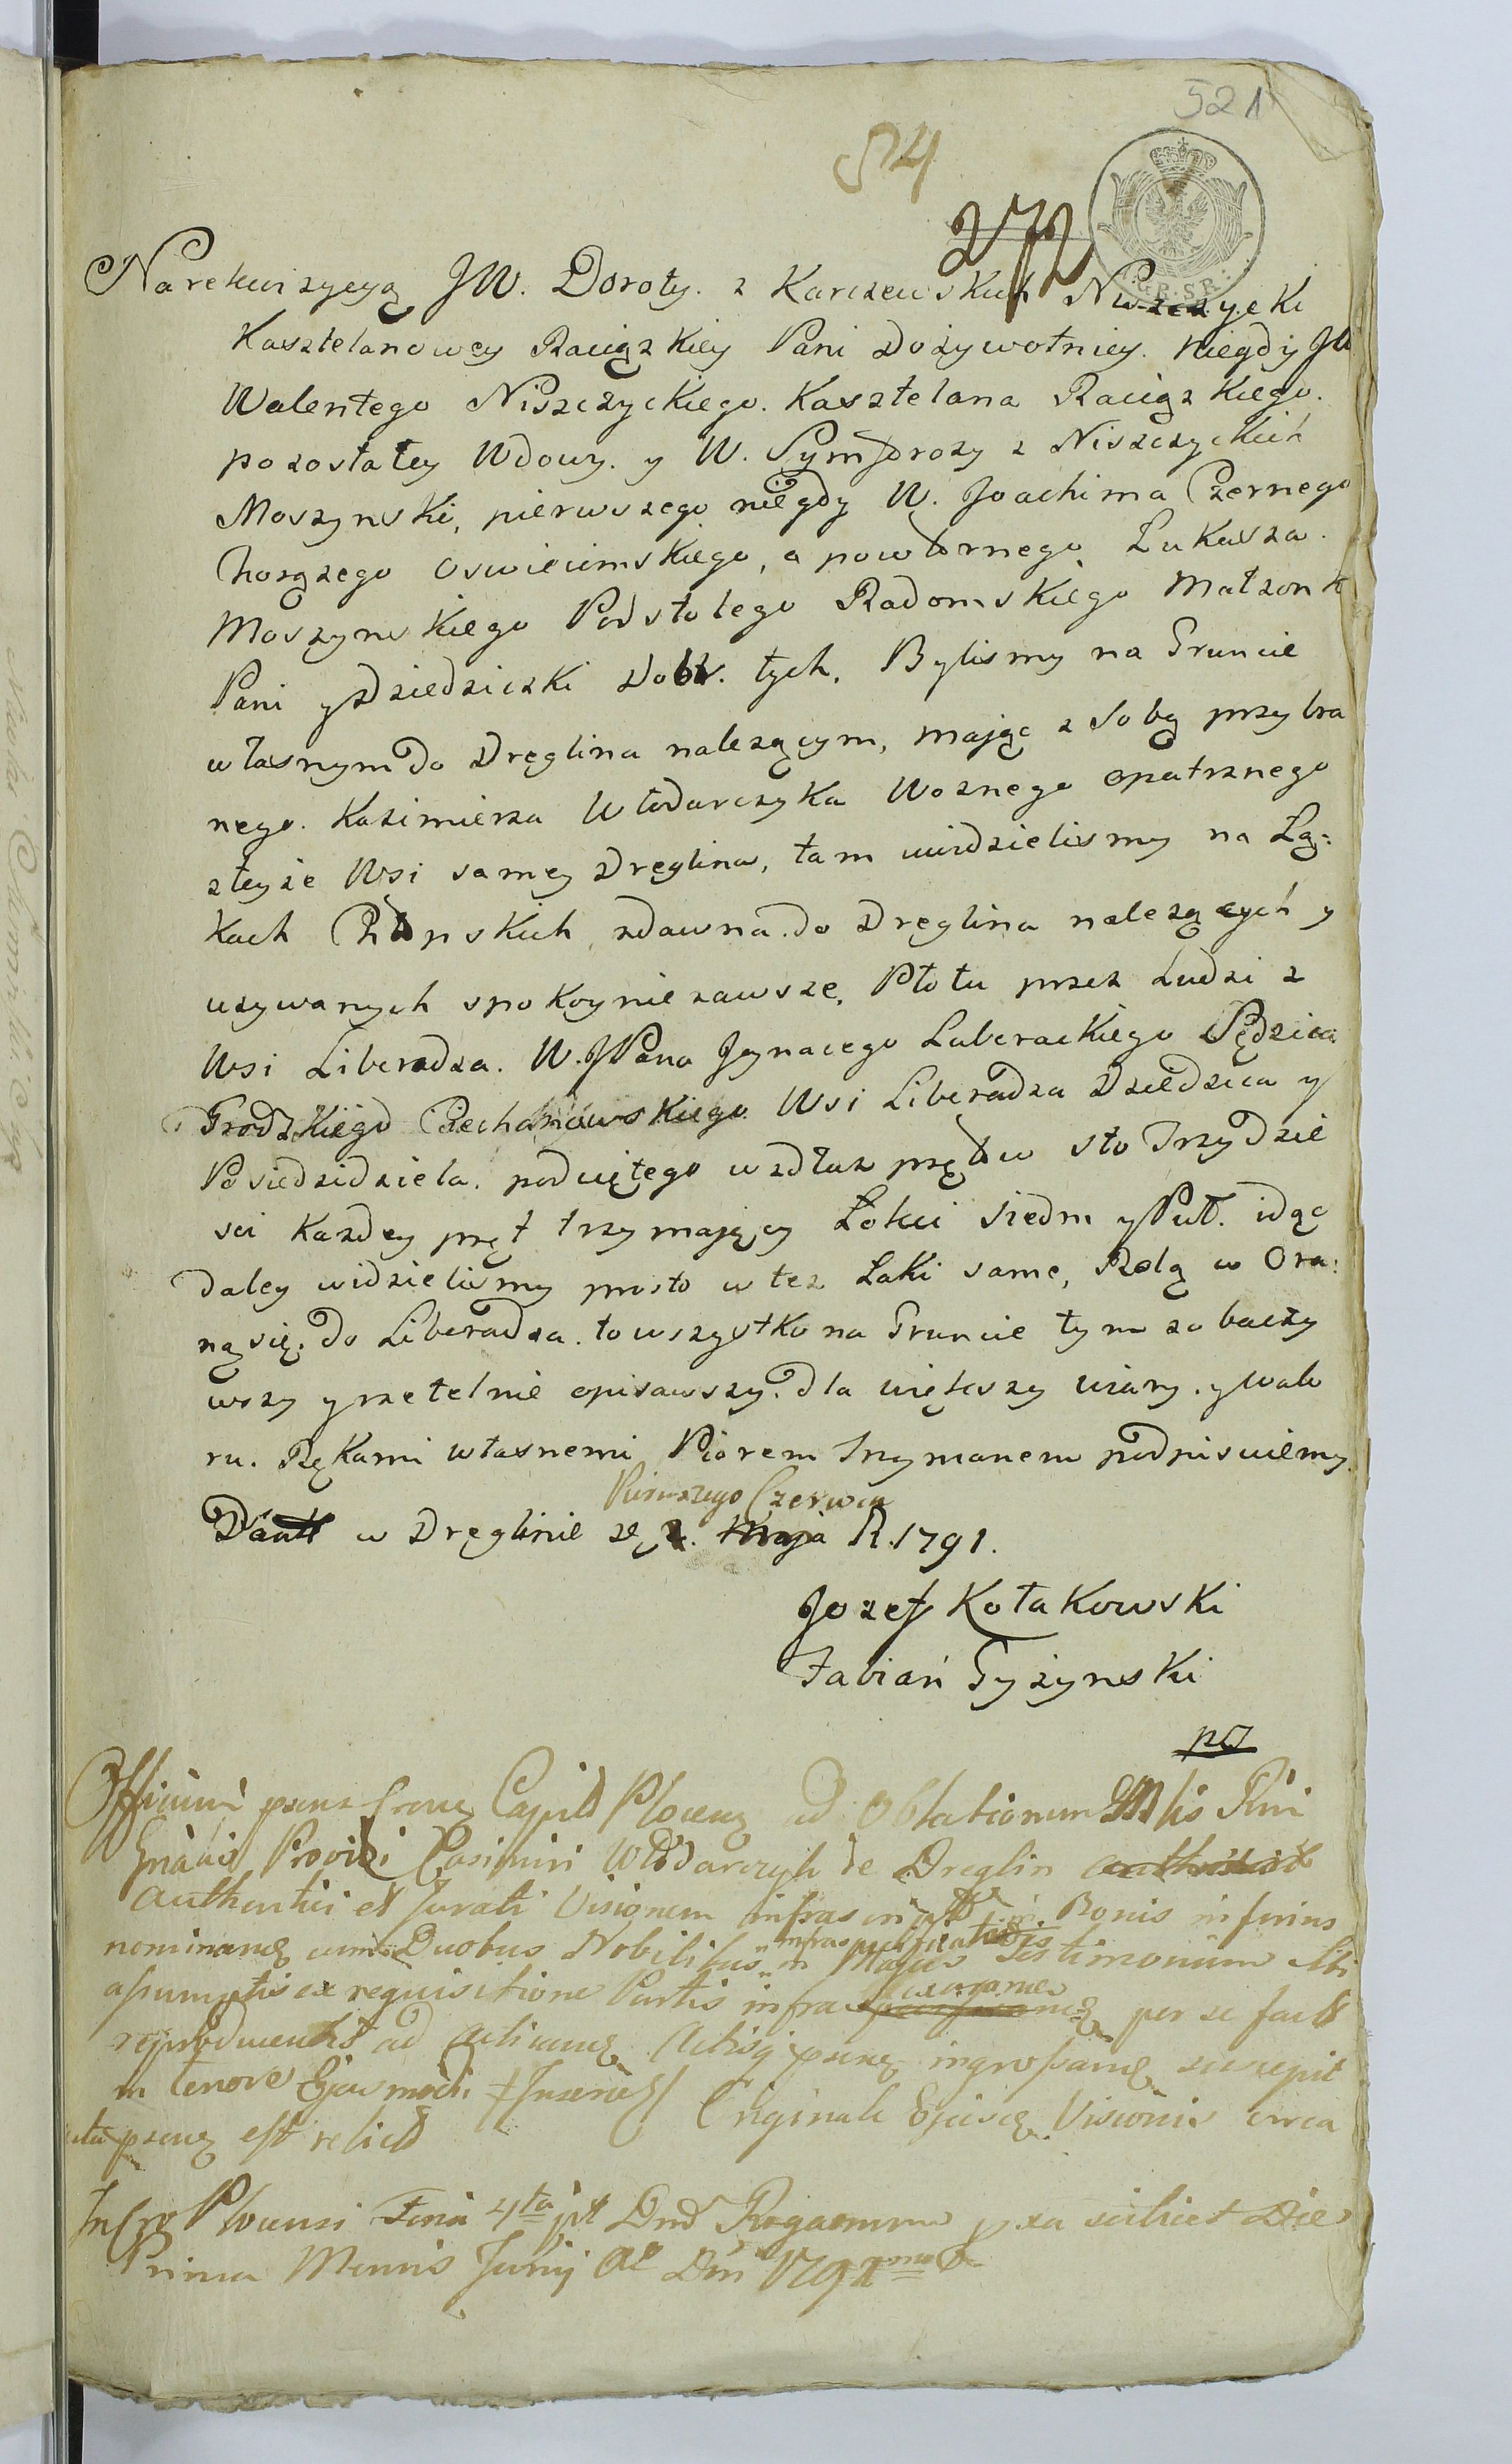 521
54
272
Na rekwizycyą JW. Doroty. z Karczewskich Niszczycki
Kasztelanowey Raciązkiey Pani Dożywotniey. Niegdy JW
Walentego Niszczyckiego. Kasztelana Raciązkiego.
pozostałey Wdowy. y W. Symforozy z Niszczyckich
Moszynski, pierwszego niegdy W. Joachima Czernego
Chorązego Oswiecimskiego, a powtornego Łukasza.
Moszynskiego Podstolego Radomskiego Małzonk
Pani y Dziedziczki Dobr. tych. Bylismy na Gruncie
własnym do Dręglina nalezącym, mając z Sobą przybra
nego. Kazimierza Włodarczyka Woznego opatrznego
z teyze Wsi samey Dręglina, tam widzielismy na Łą:
kach Chłopskich zdawna do Dręglina nalezących y
uzywanych spokoynie zawsze, Płotu przez Ludzi z
Wsi Liberadza. W. JPana Jgnacego Luberackiego Sędzica
Grodzkiego Ciechanowskiego Wsi Liberadza Dziedzica y
Posiedzidziela. podwiętego wzdłuz prętow sto Trzydzie
sci Kazdey pręt trzymaiący Łokci siedm y Puł. idąc
daley widzielismy prosto w tez Łaki same, Rolą w Ora:
ną się. do Liberadza. to wszystko na Gruncie tym zobaczy
wszy y rzetelnie opisawszy. dla większy wiary. y walo
ru. Rękami własnemi Piorem Trzymanem podpisuiemy.
Pierwszego Czerwca
Datt w Dręglinie Maja R. 1791.
Jozef Kołakowski
Fabian Gyzynski
Officium Capit Plocen ad Oblationem
Providi Casimiri Włodarczyk de Dreglin
authentici et Jurati Visionem in Bonis inferius
cum Duobus Nobilibus in Majus Testimonium sibi
assumptis ex requisitione Partis infra per se fact
ad suscepit
in tenore Ejusmodi Originale Visionis circa
est relict
Feria 4ta Rogaonum
Prima Mensis Junij Dni 1791mo